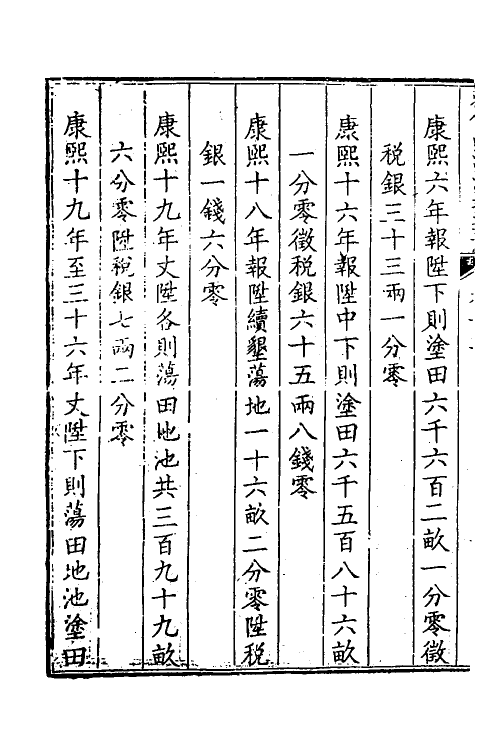 康熙六年報陞下則塗田六千六百二畝一分零徵
稅銀三十三兩一分零
康熙十六年報陞中下則塗田六千五百八十六畝
一分零徵稅銀六十五兩八錢零
康熙十八年報陞續墾蕩地一十六畝二分零陞稅
銀一錢六分零
康熙十九年丈陞各則蕩田地池共三百九十九畝
六分零陞稅銀七兩二分零
康熙十九年至三十六年丈陞下則蕩田地池塗田